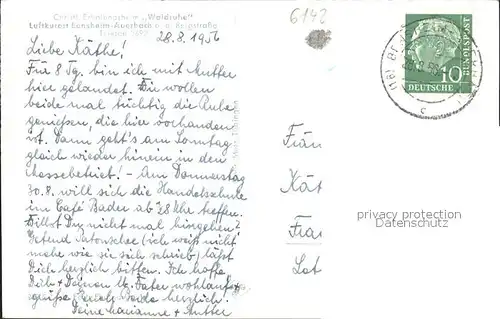 Christl. Erholungsheim "Waldruhe"
Luftkurort Bensheim-Auerbach a. d. Bergstraße
6142
28.8.1956
Liebe Käthe!
Für 8 Tg. bin ich mit Mutter
hier gelandet. Wir wollen
beide mal tüchtig die Ruhe
genießen, die hier vorhanden
ist. Dann geht's am Sonntag
gleich wieder hinein in den
Hochbetrieb! - Am Donnerstag
30.8. will sich die Handelsschule
im Café Bader ab 28 Uhr treffen.
Willst Du nicht mal hingehen?
(ich weiß nicht
mehr wie sie sich schrieb) läßt
Dich herzlich bitten. Ich hoffe
Dich + Deinen lb. Vater wohlauf +
grüße Euch Beide herzlich!
Deine Marianne + Mutter
Fräu
Kät
Fra
DEUTSCHE
BUNDESPOST
10
privacy protection
Datenschutz